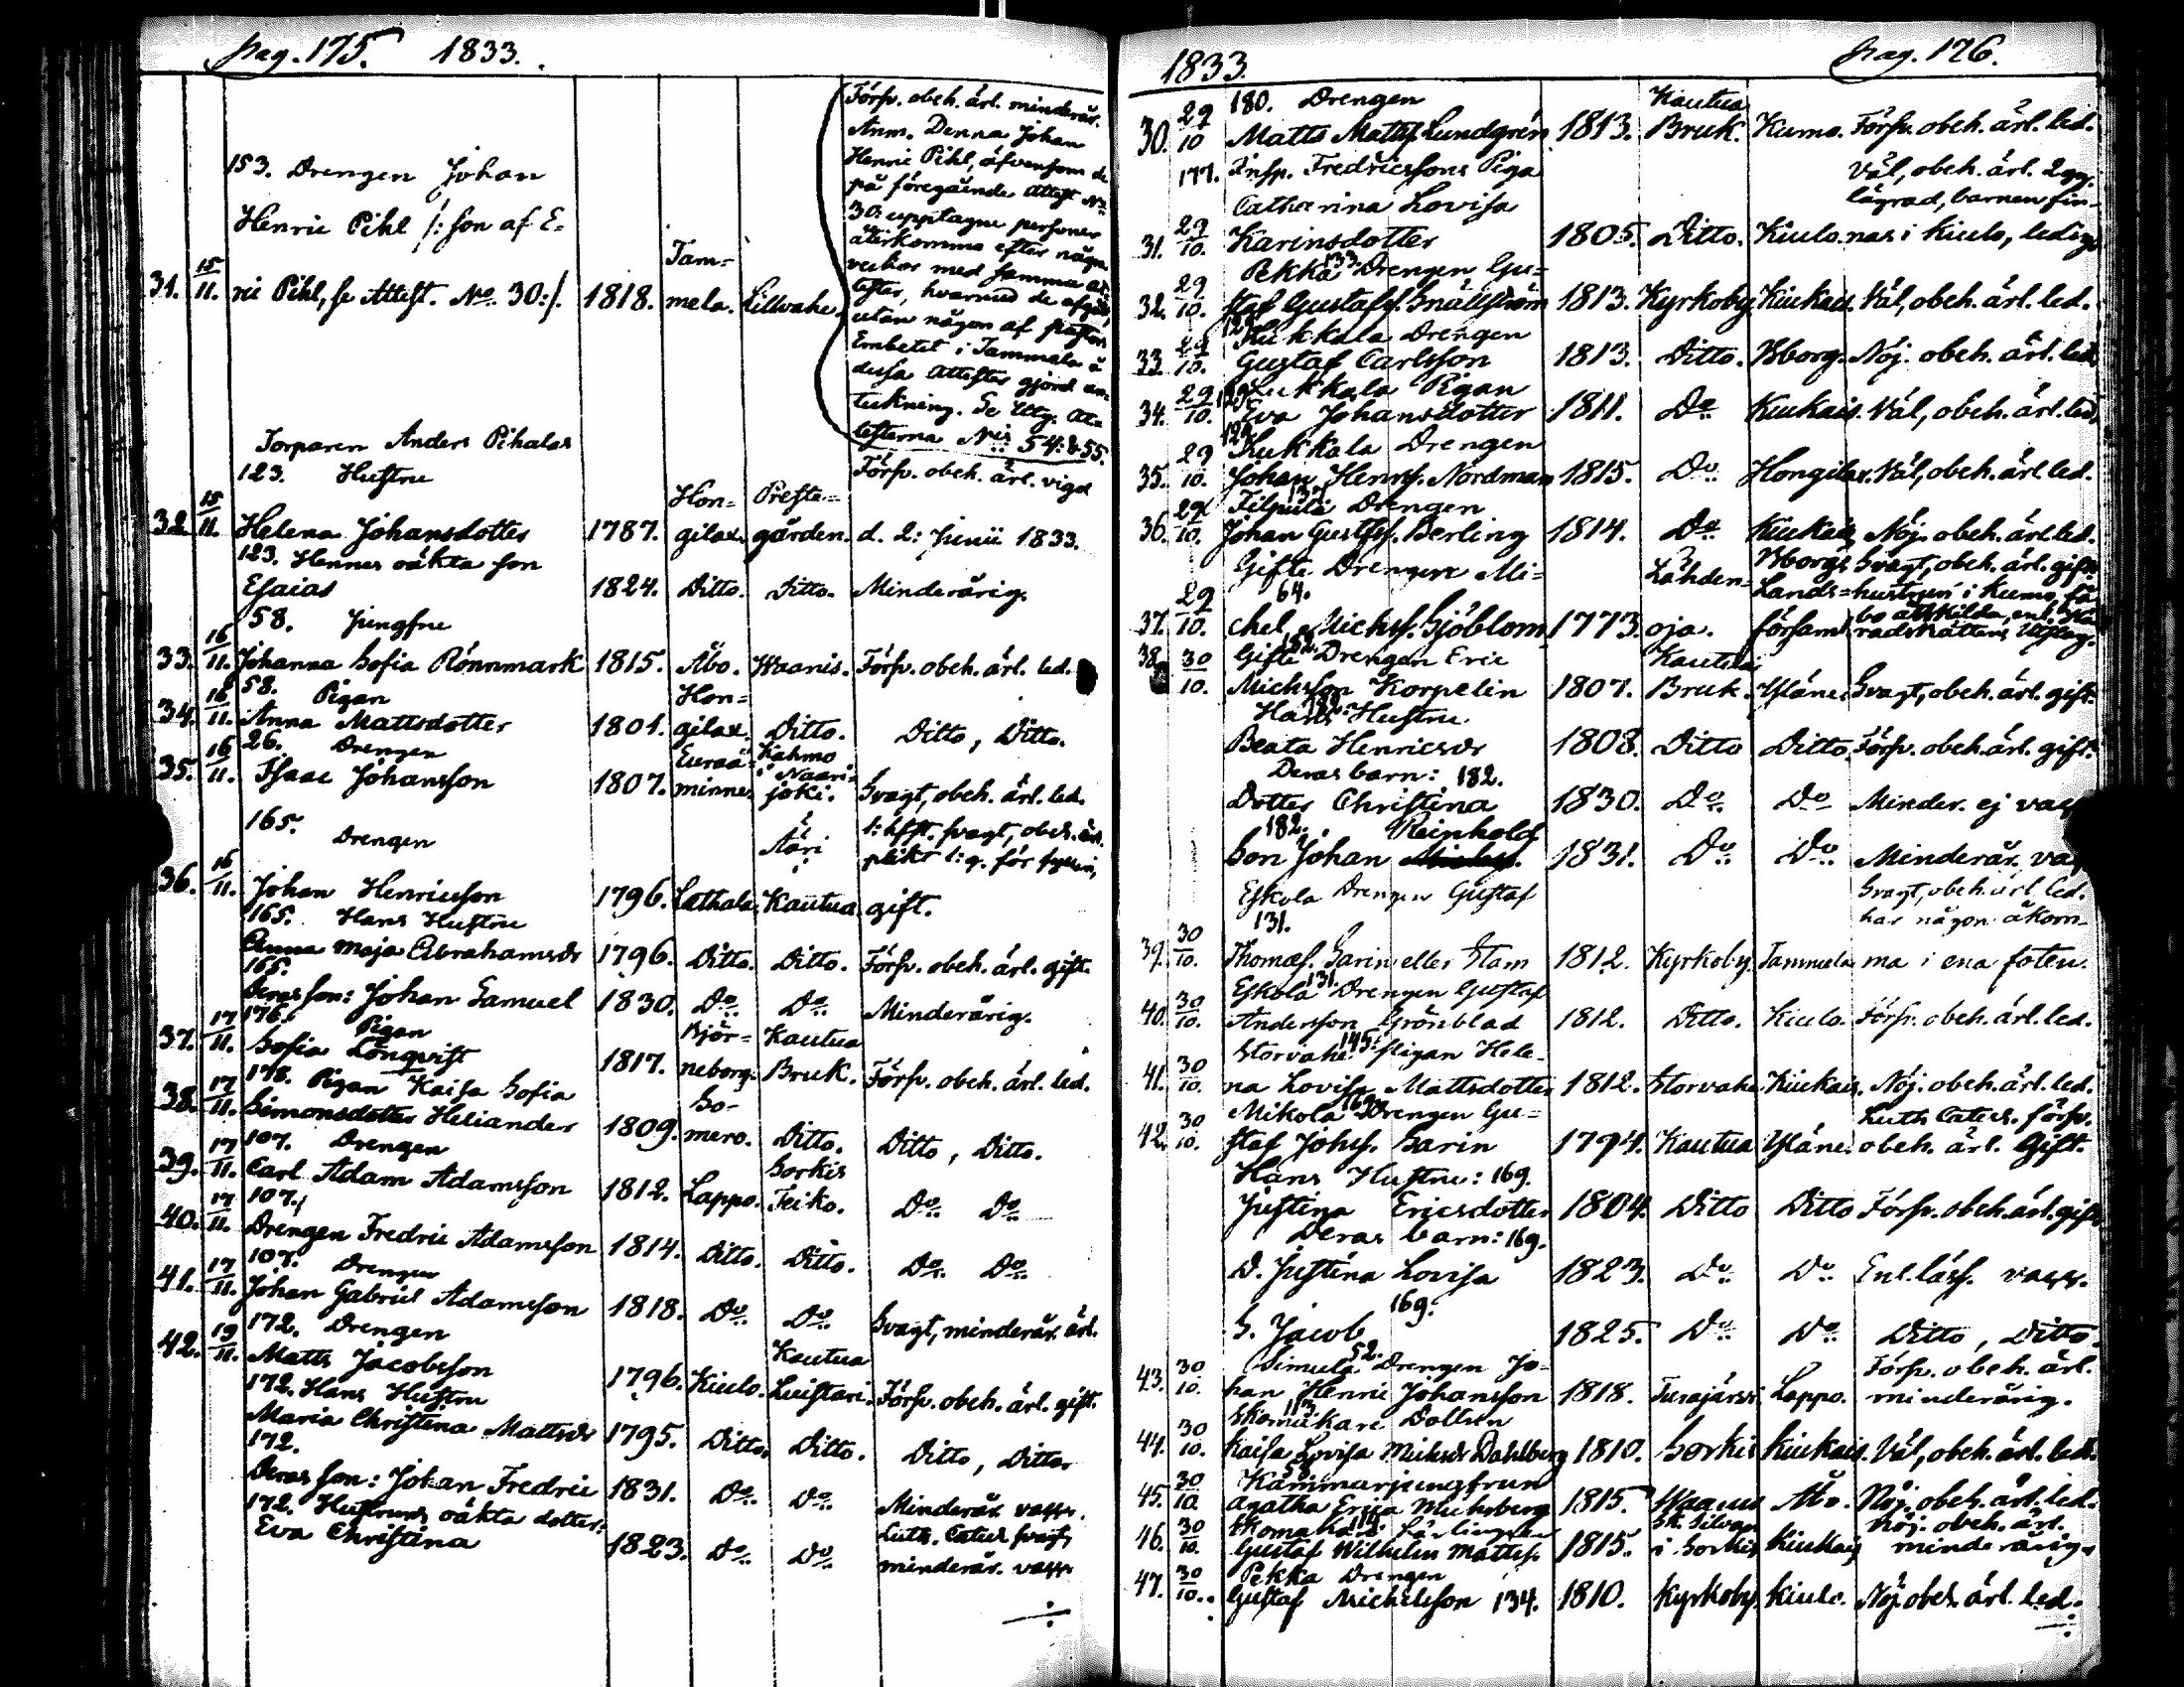 pag. 175. 1833.
Försv. obeh. ärl. minderår.
Anm. Denna Johan
Henric Pihl, äfvensom de
på föregående Attest No
30. upptagne personer
återkommo efter någre
veckor med samma at-
tester, hvarmed de afgått,
utan någon af Pastors
Embetet i Tammela å
dessa Attester gjord an-
tekning. Se Utg. At-
testerna Nris 54. & 55.
153. Drengen Johan
Henric Pihl /: son af E-
31. 15/11. ric Pihl, se Attest. No. 30:/. 1818. Tam-
mela. Lillvahe.
Torparen Anders Pihalas
123. Hustru
32. 15/11. Helena Johansdotter 1787. Hon-
gilax. Preste-
gården. Försv. obeh. ärl. vigd
d. 2: Junii 1833.
123. Hennes oäkta son
Esaias 1824. Ditto. Ditto. Minderårig.
58. Jungfru
33. 16/11. Johanna Sofia Rönnmark 1815. Åbo. Waanis. Försv. obeh. ärl. led.
58. Pigan
34. 16/11. Anna Mattsdotter 1801. Hon-
gilax. Ditto. Ditto, Ditto.
26. Drengen
35. 16/11. Isaac Johansson 1807. Euraå-
minne. Kahmo
i Naari-
joki. Svagt, obeh. ärl. led.
165. Drengen
36. 16/11. Johan Henricsson 1796. Lethala. Kautua gift.
165. Hans Hustru
Anna Maja Abrahamsdr 1796. Ditto. Ditto. Försv. obeh. ärl. gift.
165.
Deras son: Johan Samuel 1830. Do. Do. Minderårig.
176. Pigan
37. 17/11. Sofia Lönqvist 1817. Björ-
neborg. Kautua
Bruk. Försv. obeh. ärl. led.
178. Pigan Kaisa Sofia
38. 17/11. Simonsdotter Heliander 1809. So-
mero. Ditto. Ditto, Ditto.
107. Drengen
39. 17/11. Carl Adam Adamsson 1812. Lappo. Sorkis
Teiko. Do. Do.
107.
40. 17/11. Drengen Fredric Adamsson 1814. Ditto. Ditto. Do. Do.
107. Drengen
41. 17/11. Johan Gabriel Adamsson 1818. Do. Do. Svagt, minderår. ärl.
172. Drengen
42. 19/11. Matts Jacobsson 1796. Kiulo. Kautua
Luistari. Försv. obeh. ärl. gift.
172. Hans Hustru
Maria Christina Mattsdr 1795. Ditto. Ditto. Ditto, Ditto.
172.
Deras son: Johan Fredric 1831. Do. Do. Minderår. vacc.
172. Hustruns oäkta dotter:
Eva Christina 1823. Do. Do. Luth. Catec.
minderår. vacc.
1833. pag. 176.
180. Drengen
30. 29/10 Matts Matts. Lundgrén 1813. Kautua
Bruk. Kumo. Försv. obeh. ärl. led.
177. Insp. Fredricssons Piga
Catharina Lovisa
31. 29/10. Karinsdotter 1805. Ditto. Kiulo. Väl, obeh. ärl. 2 gg.
lägrad, barnen fin-
nas i Kiulo, ledig.
Pekka 133. Drengen Gu-
32. 29/10. staf Gustafs. Snällström 1813. Kyrkoby. Kiukais. Väl, obeh. ärl. led.
Kukkala Drengen
33. 29/10. Gustaf Carlsson 1813. Ditto. Nborg. Nöj. obeh. ärl. led.
129. Kukkala Pigan
34. 29/10. Eva Johansdotter 1811. Do. Kiukais. Väl, obeh. ärl. led.
129. Kukkala Drengen
35. 29/10. Johan Henrs. Nordman 1815. Do. Hongilax. Väl, obeh. ärl. led.
Filpula Drengen
36. 29/10. Johan Gustfs. Berling 1814. Do. Kiukais. Nöj. obeh. ärl. led.
Gifte Drengen Mi-
64.
37. 29/10. chel Michs. Sjöblom 1773. Lähden-
oja. Nborgs
Lands-
församl. Svagt, obeh. ärl. gift.
hustrun i Kumo,
38. 30/10. Gifte Drengen Eric
Michsson Korpelin 1807. Kautua
Bruk. Yläne. Svagt, obeh. ärl. gift.
Hans Hustru
Beata Henricsdr 1808. Ditto Ditto. Försv. obeh. ärl. gift.
Deras barn: 182.
Dotter Christina 1830. Do. Do. Minder. ej vacc.
182. Reinhold
Son Johan 1831. Do. Do. Minderår. vac
Eskola Drengen Gustaf
131.
39. 30/10. Thomas. Sarin eller Stam 1812. Kyrkoby. Tammela Svagt, obeh. ärl. led.
har någon åkom-
ma i ena foten.
Eskola 131. Drengen Gustaf
40. 30/10. Andersson Grönblad 1812. Ditto. Kiulo. Försv. obeh. ärl. led.
Storvahe 145. Pigan Hele-
41. 30/10. na Lovisa Mattsdotter 1812. Storvahe Kiukais. Nöj. obeh. ärl. led.
Mikola 169. Drengen Gu-
42. 30/10. staf Johss. Sarin 1794. Kautua Yläne. Luth. Catec. försv.
obeh. ärl. Gift.
Hans Hustru: 169.
Justina Ericsdotter 1804. Ditto Ditto Försv. obeh. ärl. gift.
Deras barn: 169.
D. Justina Lovisa 1823. Do. Do. Enl. läsf. vacc.
169.
S. Jacob 1825. Do. Do. Ditto, Ditto.
Simula 52. Drengen Jo-
43. 30/10. han Henric Johansson 1818. Turajärvi Lappo. Försv. obeh. ärl.
minderårig.
Skomakare Dottren
44. 30/10. Kaisa Lovisa Michsdr Dahlberg 1810. Sorkis Kiukais. Väl, obeh. ärl. led.
Kammarjungfrun
45. 30/10. Agatha Erica 1815. Waanis Åbo. Nöj. obeh. ärl. led.
Skomakare 114. Lärlingen
46. 30/10. Gustaf Wilhelm Mattss. 1815. i Sorkis Kiukais Nöj. obeh. ärl.
minderårig.
Pekka Drengen
47. 30/10. Gustaf Michelsson 134. 1810. Kyrkoby. Kiulo. Nöj. obeh. ärl. led.